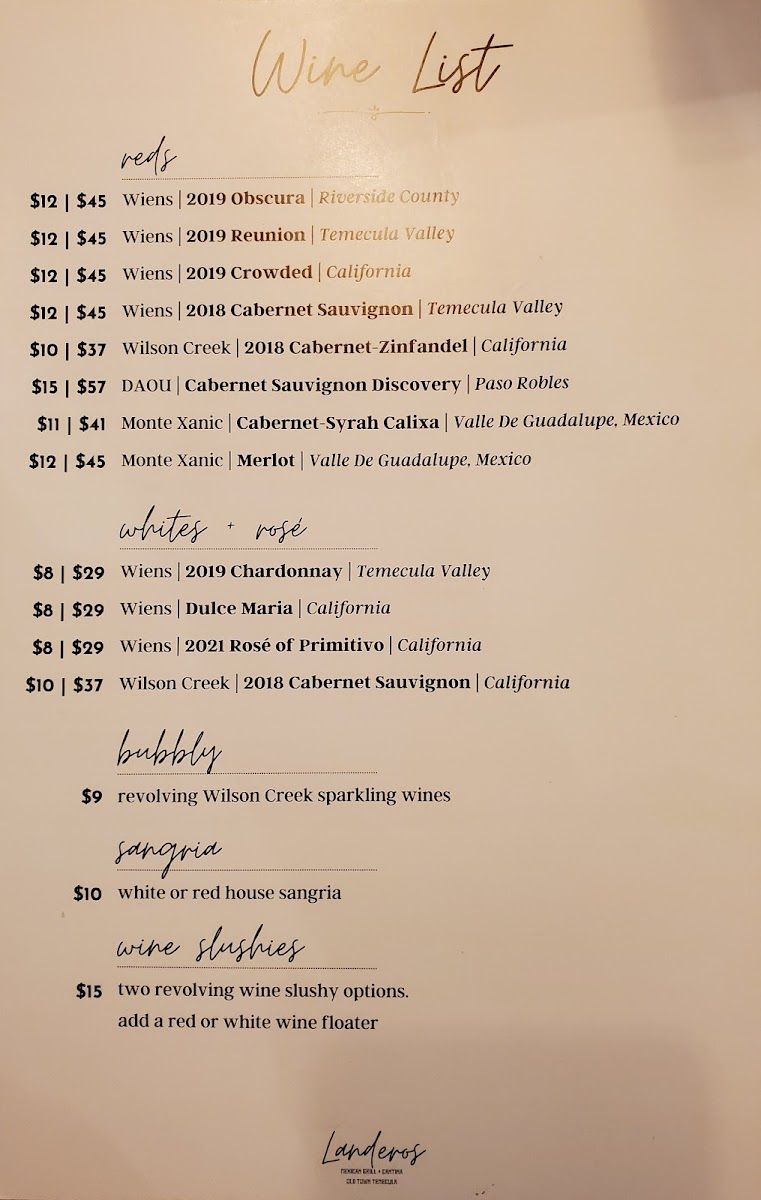 Wine List
reds
$12 | $45 Wiens | 2019 Obscura | Riverside County
$12 | $45 Wiens | 2019 Reunion | Temecula Valley
$12 | $45 Wiens | 2019 Crowded | California
$12 | $45 Wiens | 2018 Cabernet Sauvignon | Temecula Valley
$10 | $37 Wilson Creek | 2018 Cabernet-Zinfandel | California
$15 | $57 DAOU | Cabernet Sauvignon Discovery | Paso Robles
$11 | $41 Monte Xanic | Cabernet-Syrah Calixa | Valle De Guadalupe, Mexico
$12 | $45 Monte Xanic | Merlot | Valle De Guadalupe, Mexico
whites + rosé
$8 | $29 Wiens | 2019 Chardonnay | Temecula Valley
$8 | $29 Wiens | Dulce Maria | California
$8 | $29 Wiens | 2021 Rosé of Primitivo | California
$10 | $37 Wilson Creek | 2018 Cabernet Sauvignon | California
bubbly
$9 revolving Wilson Creek sparkling wines
sangria
$10 white or red house sangria
wine slushies
$15 two revolving wine slushy options.
add a red or white wine floater
Landeros
MEXICAN GRILL + CANTINA
OLD TOWN TEMECULA